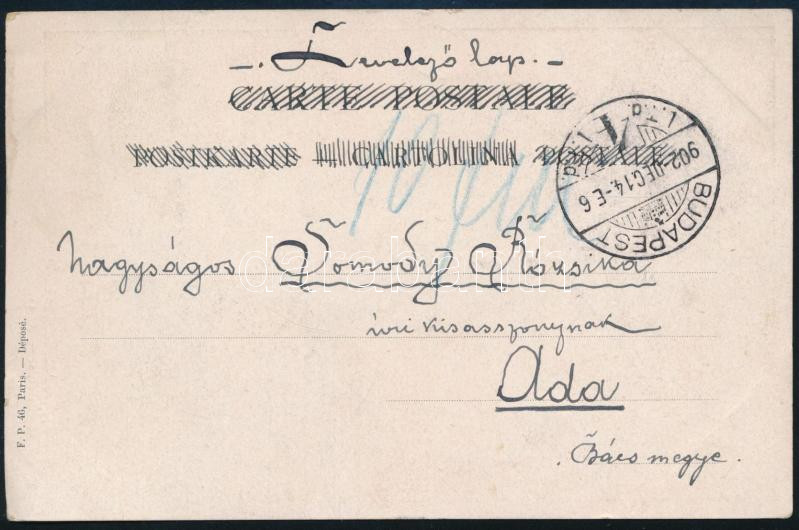 -. Levelező lap. -
CARTE POSTALE
POSTKARTE — CARTOLINA POSTALE
10 fill
BUDAPEST
902 DEC. 14 - E 6
Nagyságos Somody Rózsika
úri kisasszonynak
Ada
. Bács megye .
F. P. 46, Paris. — Déposé.
darabanth.com